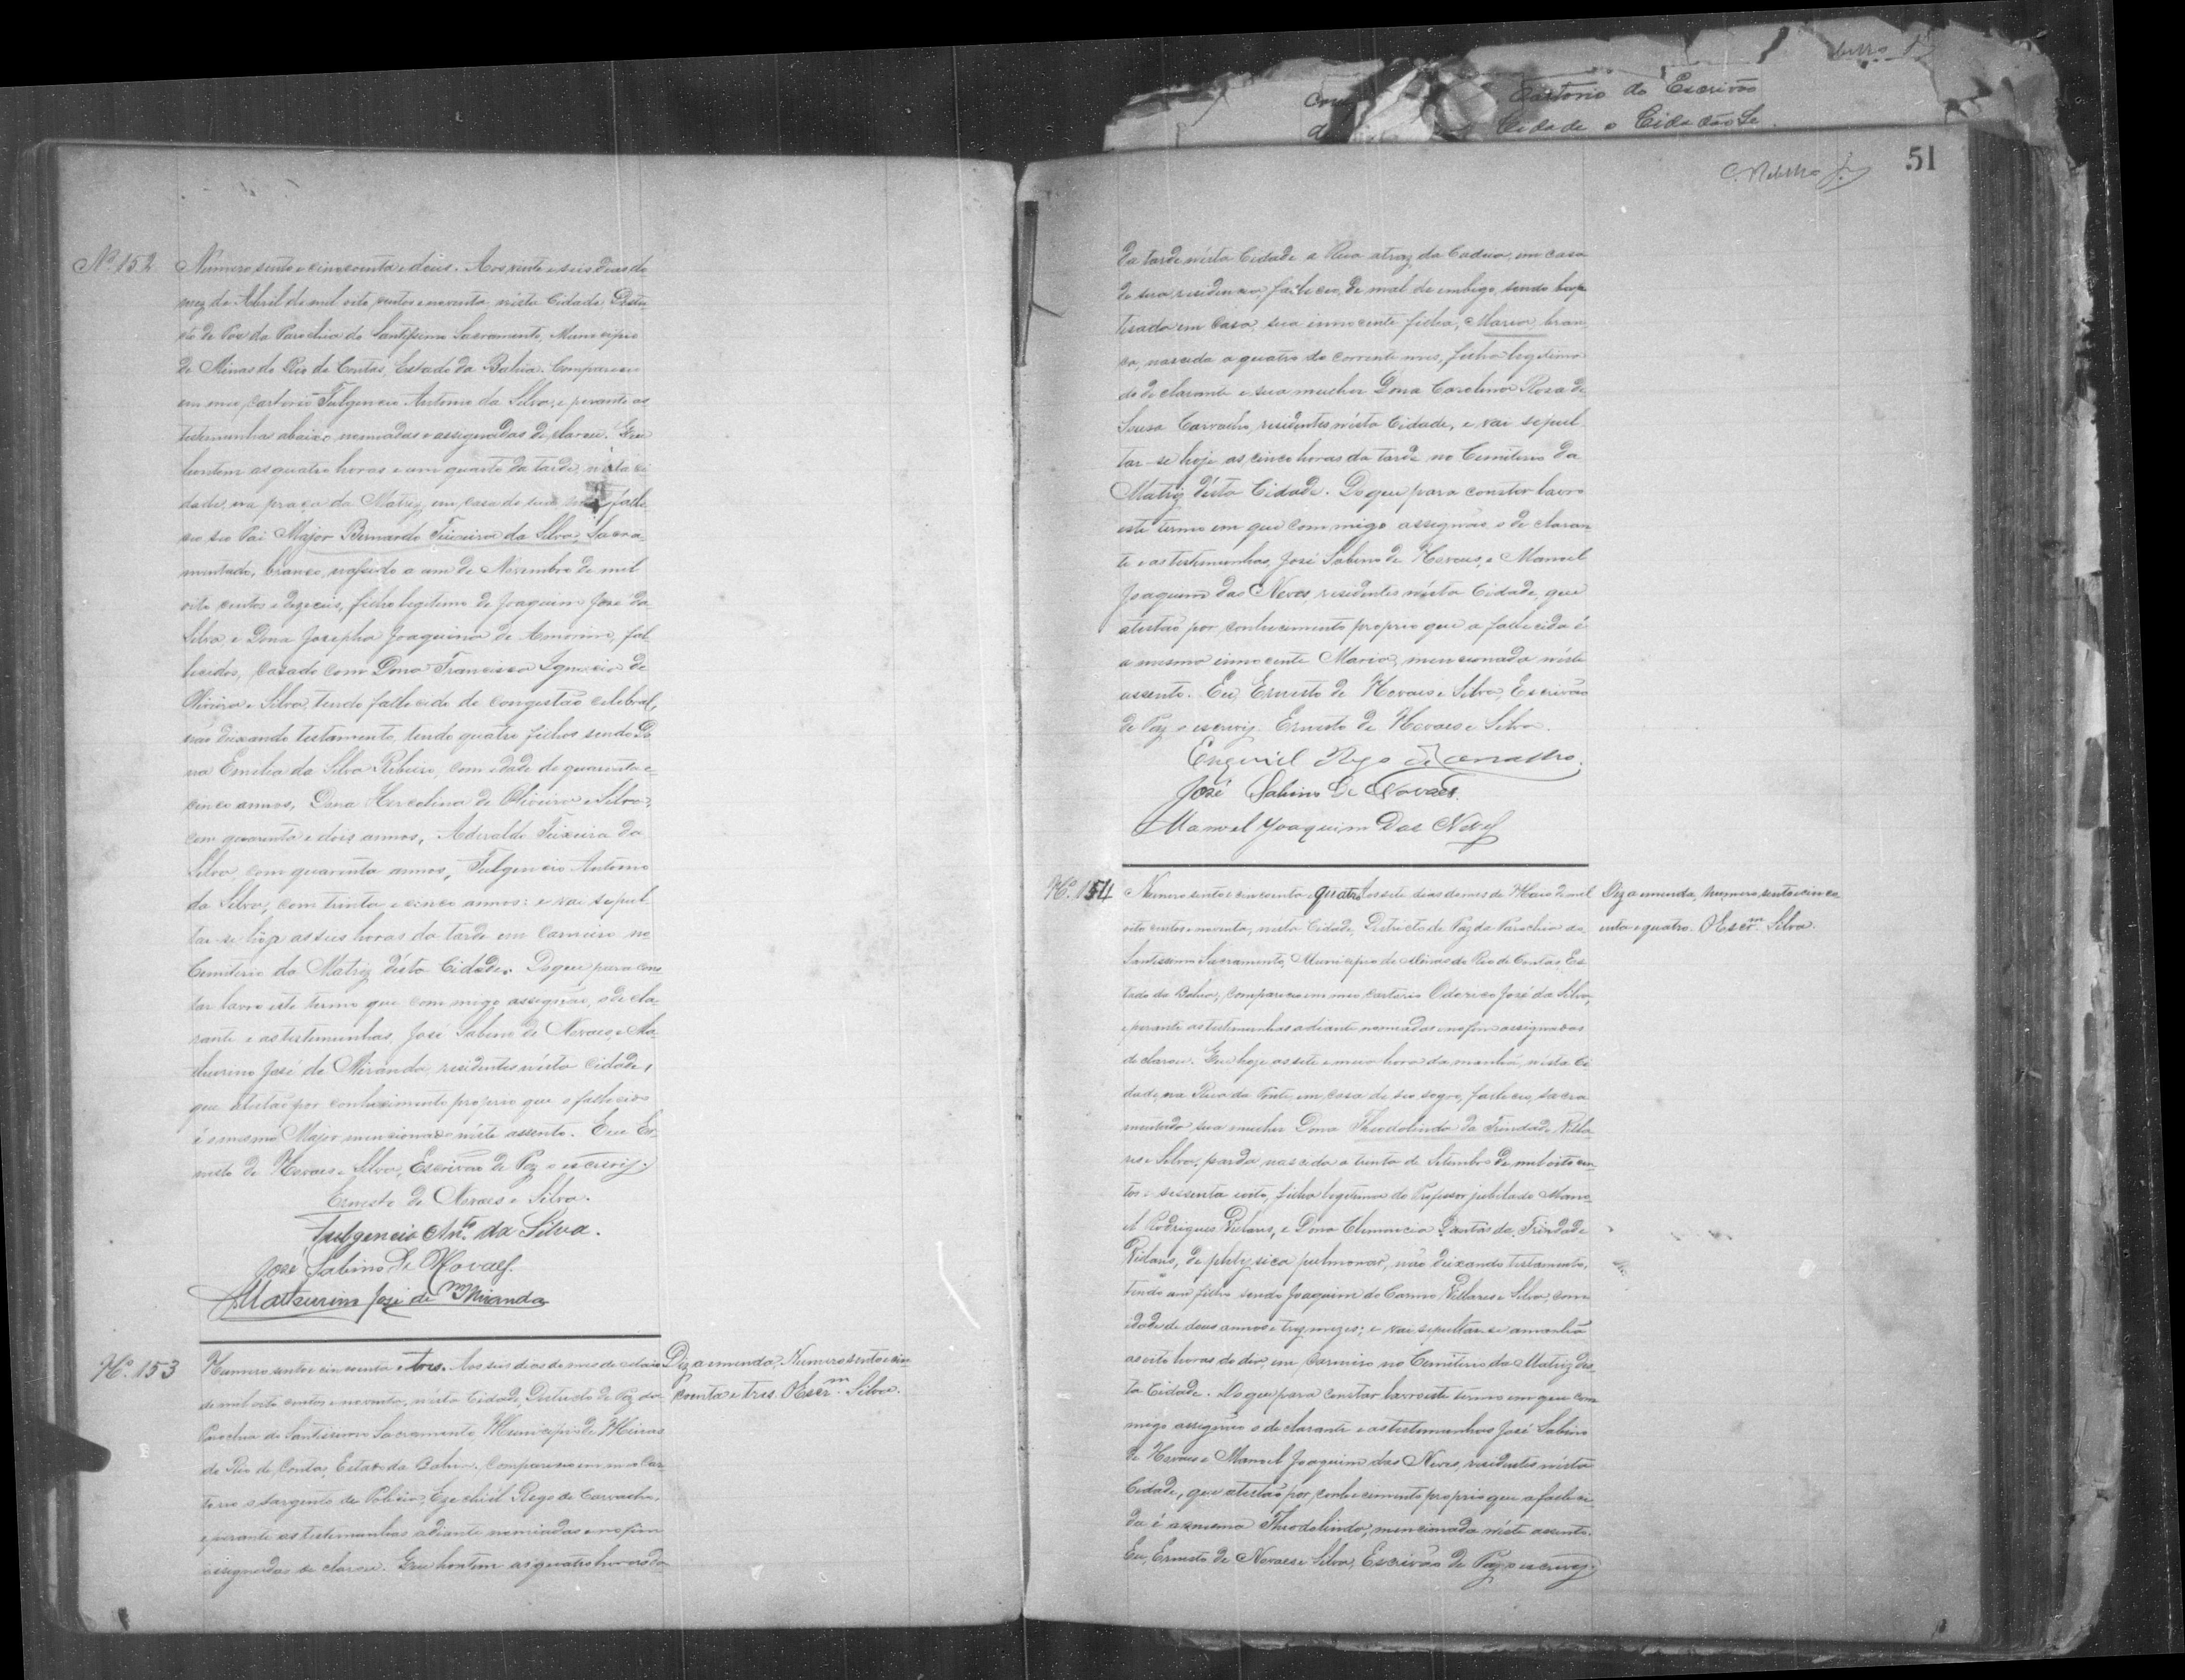 Cartorio do Escrivão
Cidade o Cidadão Se
Nº 152
Numero sento e cincoenta e dois. Aos vinte e seis dias do
mez de Abril de mil oito centos e noventa nésta Cidade Destri-
cto de Paz da Parochia do Santissimo Sacramento, Municipio
de Minas do Rio de Contas, Estado da Bahia. Compareceo
em meo Cartorio Fulgencio Antonio da Silva, e perante as
testemunhas abaixo nomeadas e assignadas declarou. Que
hontem as quatro horas e um quarto da tarde nésta ci
dade, na praça da Matriz, em casa de sua falle
ceo seo Pai Major Bernardo Teixeira da Silva, Sacra-
mentado, branco, nassido a um de Novembro de mil
oito centos e dezeceis, filho legitimo de Joaquim José da
Silva e Dona Josepha Joaquina de Amorim, fal-
lecidos, Casado com Dona Francisca Ignacia de
Oliveira e Silva, tendo fallecido de congestão celebral,
não deixando testamento, tendo quatro filhos sendo Do
na Emilia da Silva Ribeiro, com idade de quarenta e
cinco annos, Dona Hercelina de Oliveira e Silva,
com quarenta e dois annos, Aderaldo Teixeira da
Silva, com quarenta annos, Fulgencio Antonio
da Silva, com trinta e cinco annos: e vai sepul-
tar-se hoje as seis horas da tarde em Carneiro no
Cemiterio da Matriz désta Cidade. Do que para cons
tar lavro este termo que commigo assignão, o decla-
rante e as testemunhas José Sabino de Novaes, e Ma-
thurino José de Miranda, residentes nésta Cidade,
que atestão por conhecimento proprio que o fallecido
é o mesmo Major mencionado néste assento. Eu Er-
nesto de Novaes e Silva, Escrivão de Paz o escrevij.
Ernesto de Novaes e Silva.
Fulgencio Antº da Silva.
José Sabino de Novaes.
Mathurino José de Miranda
Nº 153
Numero sento e cincoenta e tres. Aos seis dias do mes de Maio
de mil oito centos e noventa, nésta Cidade, Destricto de Paz da
Parochia do Santissimo Sacramento, Municipio de Minas
do Rio de Contas, Estado da Bahia. Compareceo em meo Car-
torio o Sargento de Policia, Ezechiél Rego de Carvalho,
e perante as testemunhas adiante nomeadas e no fim
assignadas declarou. Que hontem as quatro horas da
Diz a emenda, Numero sento e cin-
coenta e tres. O Escrm Silva.
51
da tarde nésta Cidade a Rua atraz da Cadeia, em casa
de sua residencia, falleceo de mal de embigo, sendo bap
tisada em Casa, sua innocente filha, Maria, bran
ca, nascida a quatro do corrente mes, filha legitima
do declarante e sua mulher Dona Carolina Rosa de
Sousa Carvalho, residentes nésta Cidade, e vai sepul
tar-se hoje as cinco horas da tarde no Cemiterio da
Matriz désta Cidade. Do que para constar lavro
este termo em que commigo assignão, o declaran
te e as testemunhas, José Sabino de Novaes, e Manoel
Joaquim das Neves, residentes nésta Cidade, que
atestão por conhecimento proprio que a fallecida é
a mesma innocente Maria, mencionada néste
assento. Eu, Ernesto de Novaes e Silva, Escrivão
de Paz o escrevij. Ernesto de Novaes e Silva.
Ezequiel Rego de Carvalho.
José Sabino de Novaes.
Manoel Joaquim das Neves
Nº 154
Numero sento e cincoenta e quatro. Aos sete dias do mes de Maio de mil
oito centos e noventa, nésta Cidade, Districto de Paz da Parochia do
Santissimo Sacramento, Municipio de Minas do Rio de Contas, Es
tado da Bahia, compareceo em meo Cartorio Odorico José da Silva,
e perante as testemunhas adiante nomeadas e no fim assignadas
declarou. Que hoje as sete e meia hora da manhã, nésta Ci
dade, na Rua da Ponte, em casa de seo sogro, falleceo, sacra
mentada sua mulher Dona Theodolinda da Trindade Villa-
res e Silva, parda nascida a trinta de Setembro de mil oito cen-
tos e sessenta e oito, filha legitima do Professor jubilado Mano-
el Rodrigues Villares, e Dona Clemencia Dantas da Trindade
Villares, de phtysica pulmonar, não deixando testamento,
tendo um filho sendo Joaquim do Carmo Villares e Silva, com
idade de dous annos e trez mezes; e vai sepultar-se amanhã
as oito horas do dia, em Carneiro no Cemiterio da Matriz dés-
ta Cidade. Do que para constar lavro este termo em que com
migo assignão o declarante e as testemunhas José Sabino
de Novaes e Manoel Joaquim das Neves, residentes nésta
Cidade, que atestão por conhecimento proprio que a falleci-
da é a mesma Theodolinda, mencionada néste assento.
Eu, Ernesto de Novaes e Silva, Escrivão de Paz, o escrevij.
Diz a emenda, numero sento e cinco
enta e quatro. O Escrm Silva.